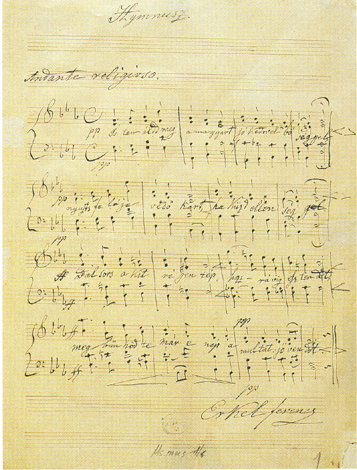 Hymnusz
Andante religioso.
pp
Isten áldd meg a magyart jó kedvvel bő séggel
pp
pp
nyujts felé je védő kart, ha küzd ellen
pp
ff Bal sors a kit régen tép, hoz rá víg esztendőt
ff
pp
ff meg bűnhődte már e nép a multat jövendőt
ff
pp
Erkel Ferencz